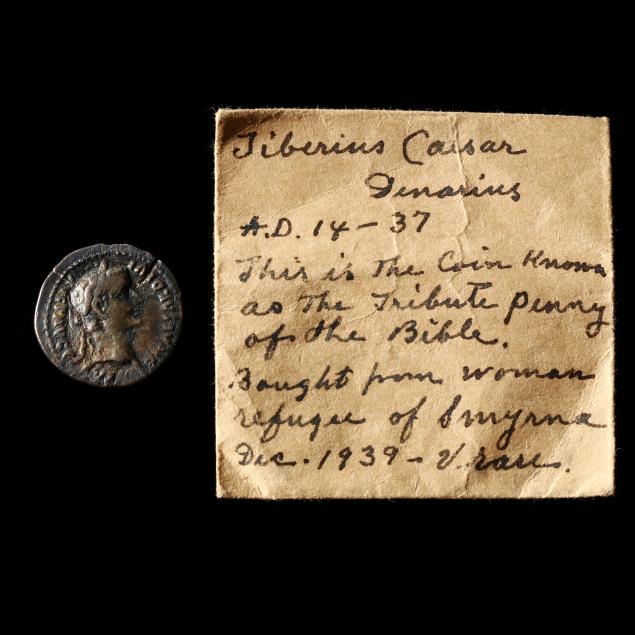 Tiberius Caesar
Denarius
A.D. 14 - 37
This is The Coin Known
as The Tribute penny
of the Bible.
Bought from woman
refugee of Smyrna
Dec. 1939 - V. rare.